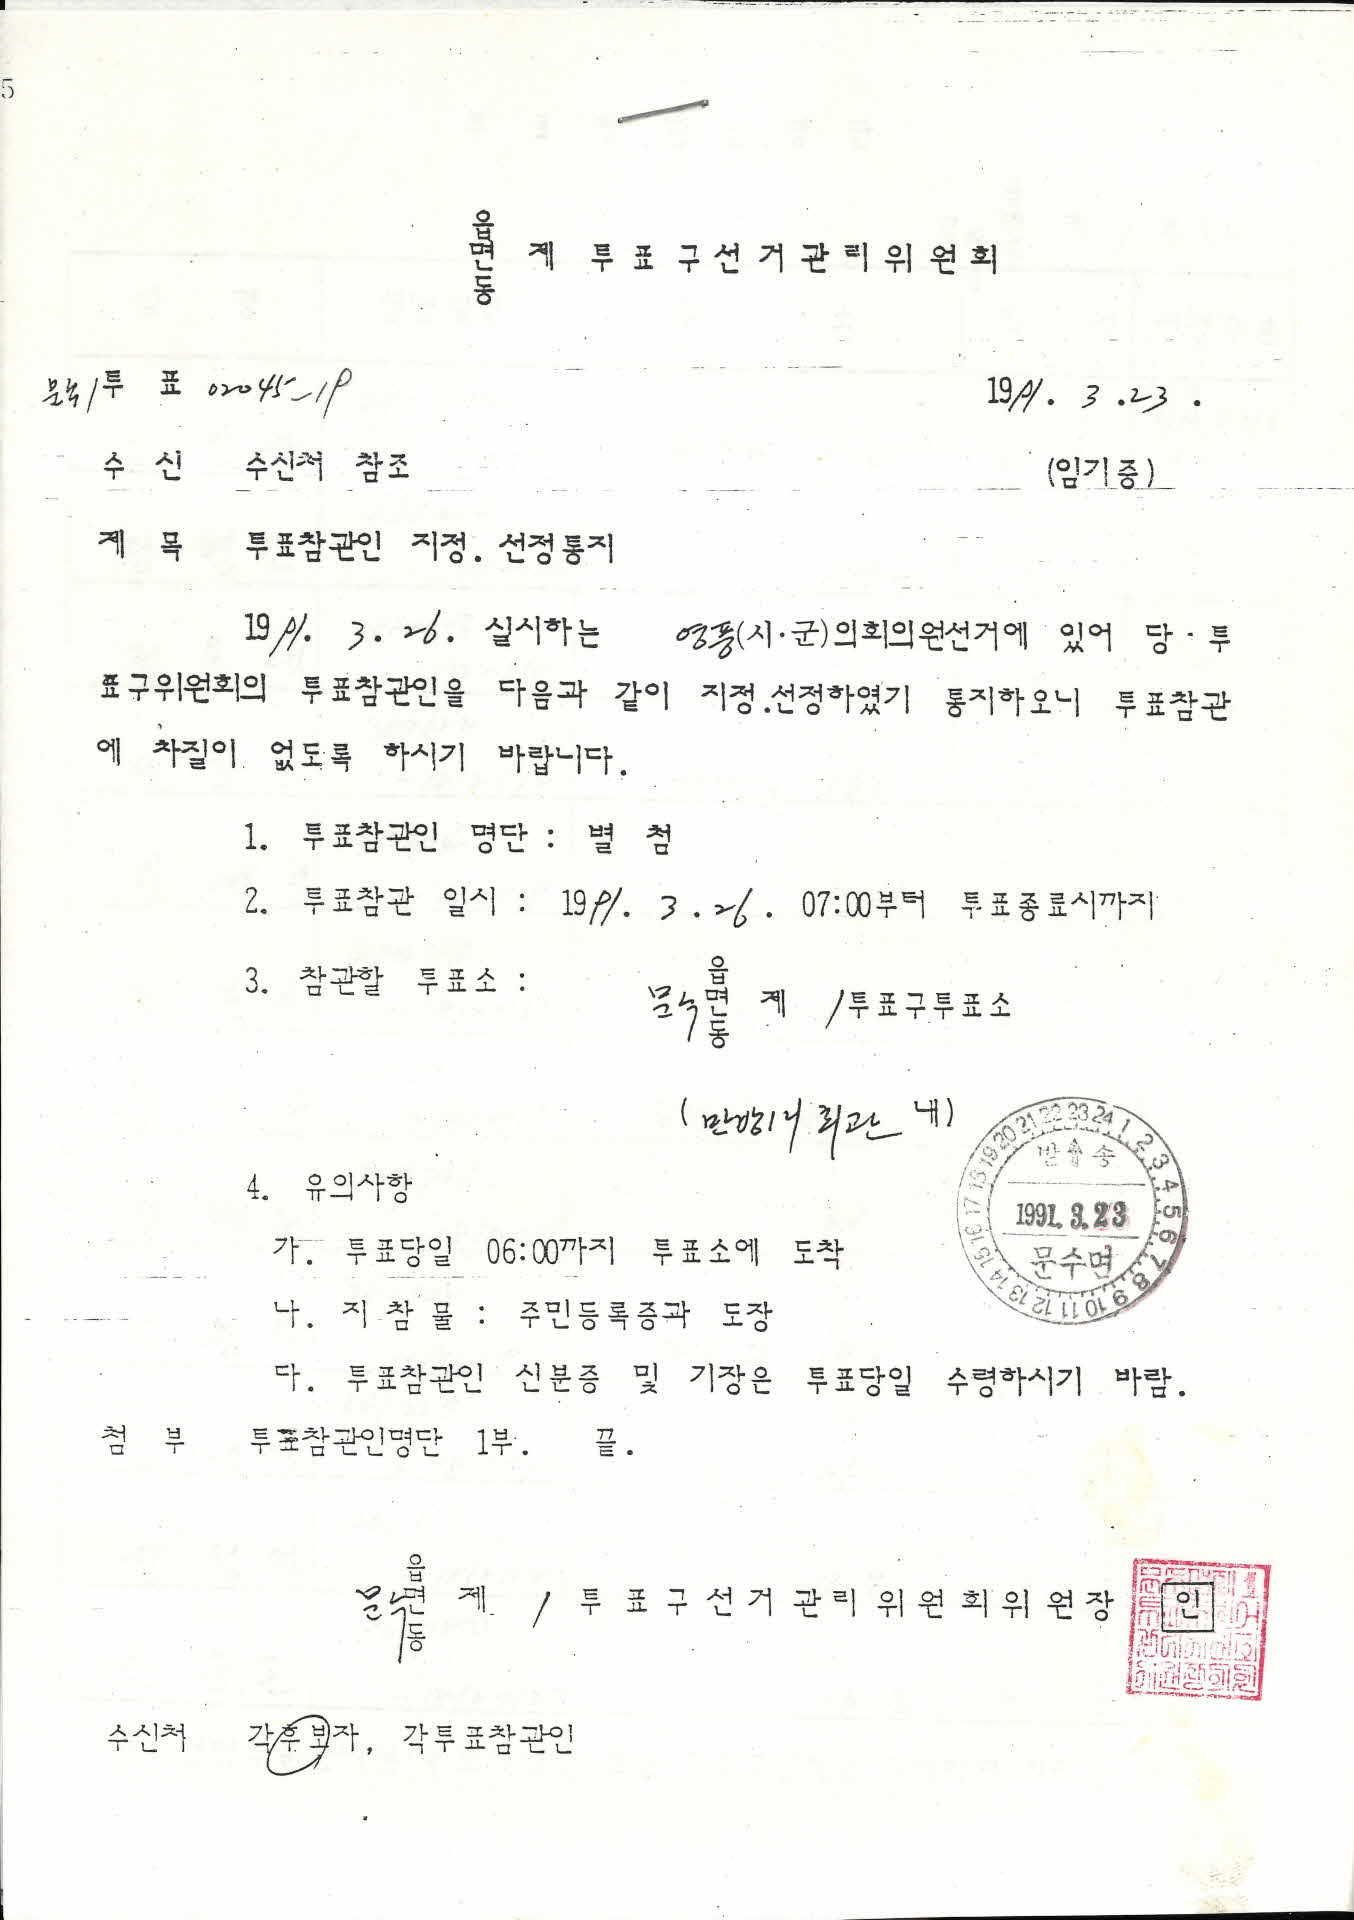 5
읍
면 제 투표구선거관리위원회
동
문수1투 표 02045-19 1991. 3. 23.
수 신 수신처 참조 (임기중)
제 목 투표참관인 지정.선정통지
1991. 3. 26. 실시하는 영풍(시·군)의회의원선거에 있어 당·투
표구위원회의 투표참관인을 다음과 같이 지정.선정하였기 통지하오니 투표참관
에 차질이 없도록 하시기 바랍니다.
1. 투표참관인 명단 : 별 첨
2. 투표참관 일시 : 1991. 3. 26. 07:00부터 투표종료시까지
3. 참관할 투표소 :
읍
문수면 제 1투표구투표소
동
( 회관 내)
4. 유의사항
가. 투표당일 06:00까지 투표소에 도착
나. 지 참 물 : 주민등록증과 도장
다. 투표참관인 신분증 및 기장은 투표당일 수령하시기 바람.
첨 부 투표참관인명단 1부. 끝.
1 2 3 4 5 6 7 8 9 10 11 12 13 14 15 16 17 18 19 20 21 22 23 24
발 송
1991. 3. 23
문수면
읍
문수면 제 1 투표구선거관리위원회위원장 인
동
수신처 각후보자, 각투표참관인